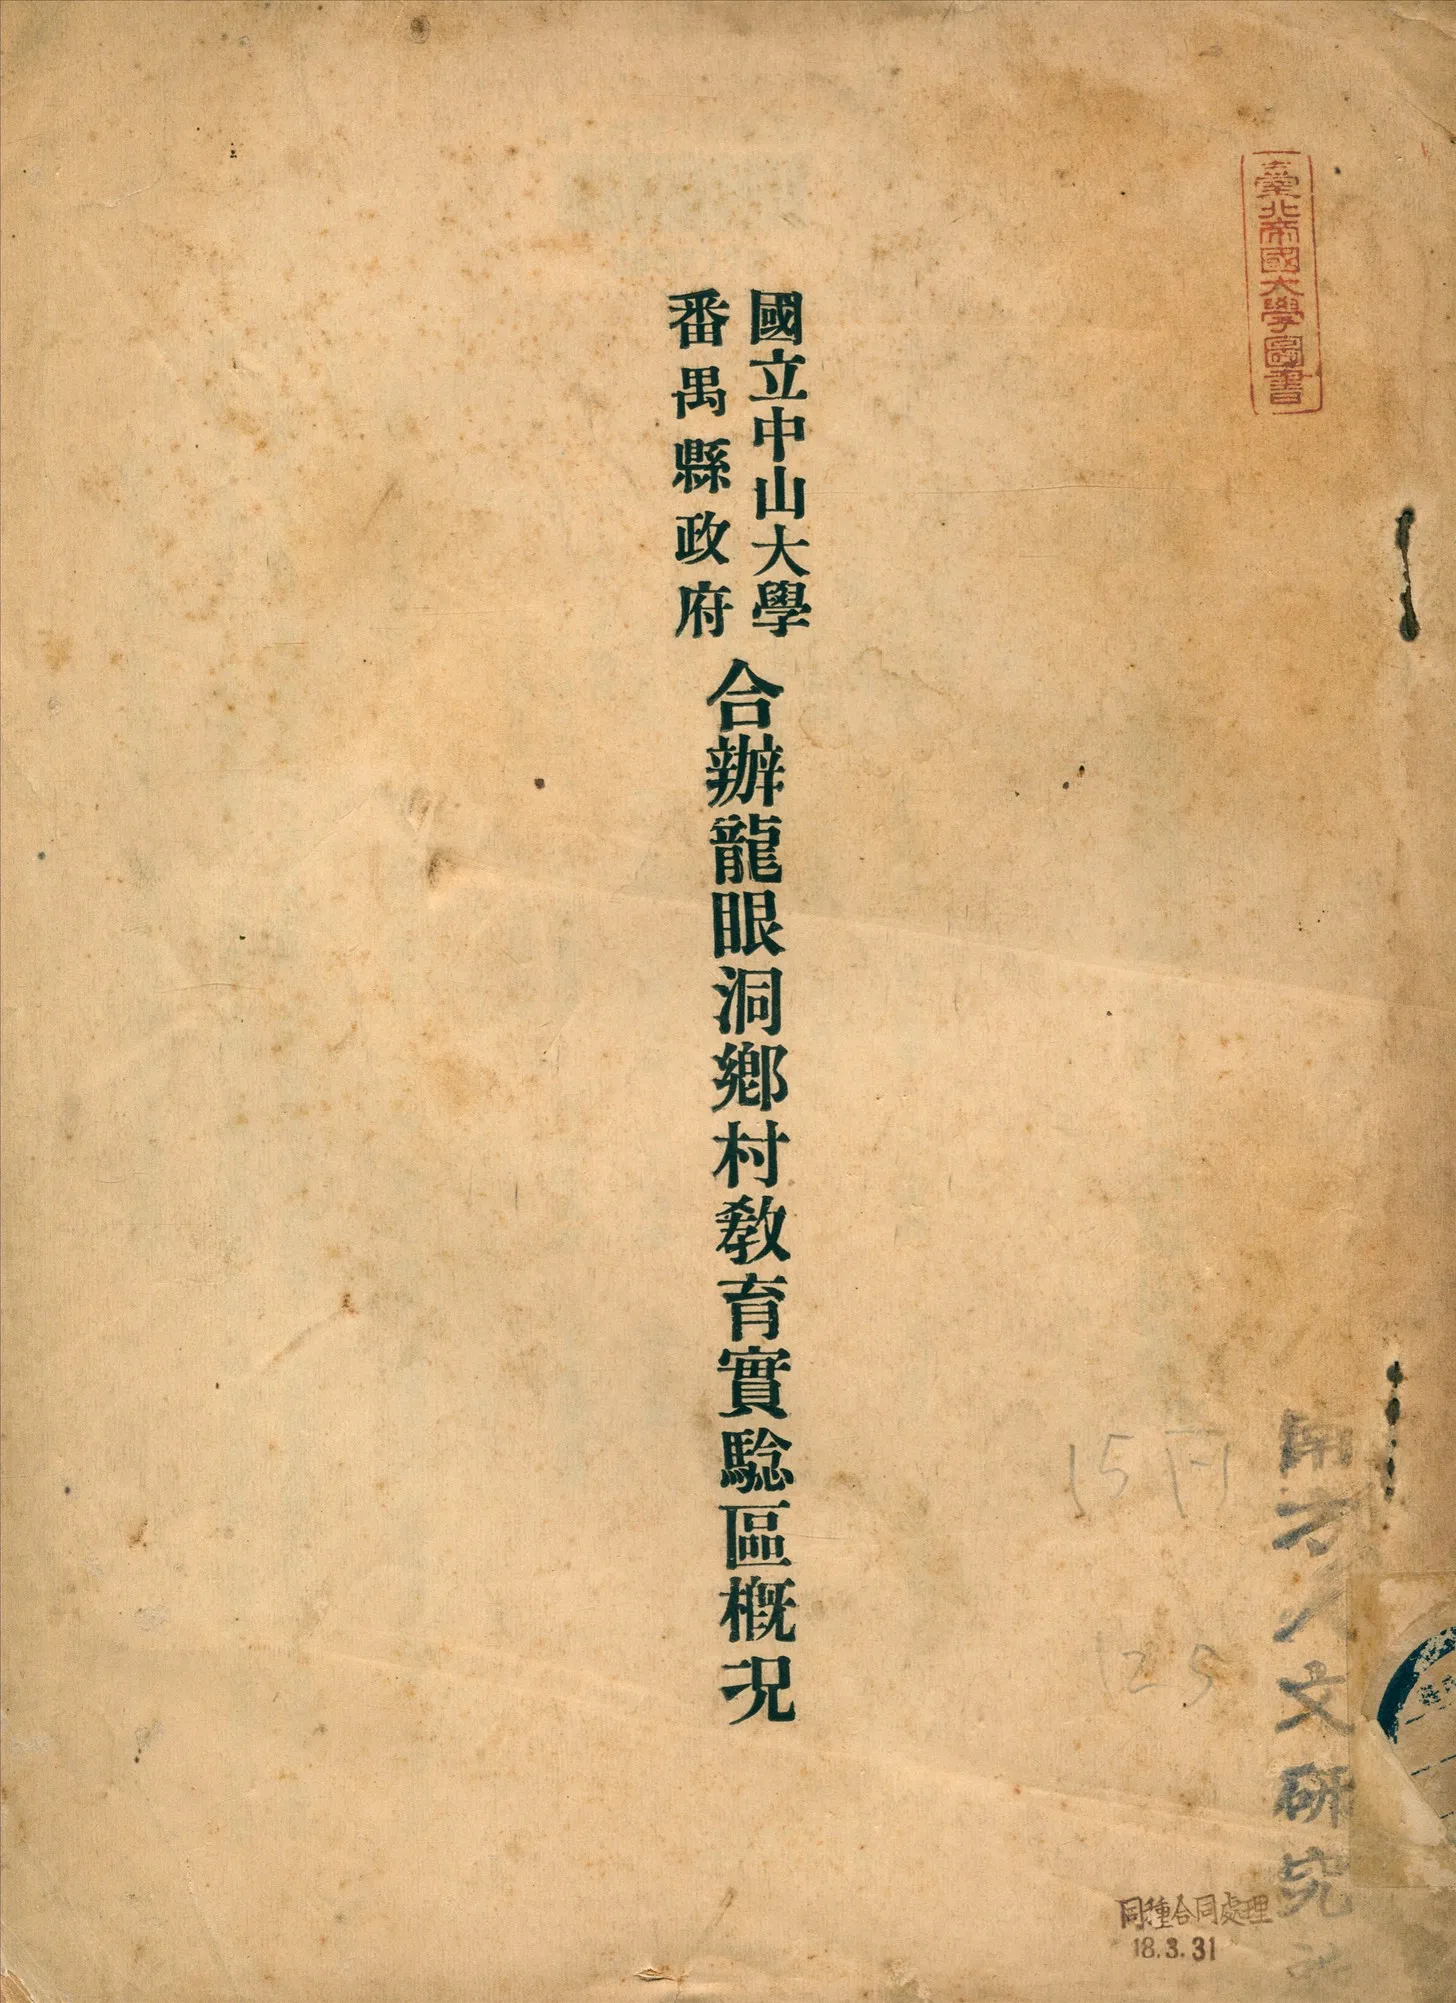 臺北帝國大學圖書
國立中山大學
番禺縣政府
合辦龍眼洞鄉村教育實驗區概況
15円
125
南方人文研究
同種合同處理
18.3.31